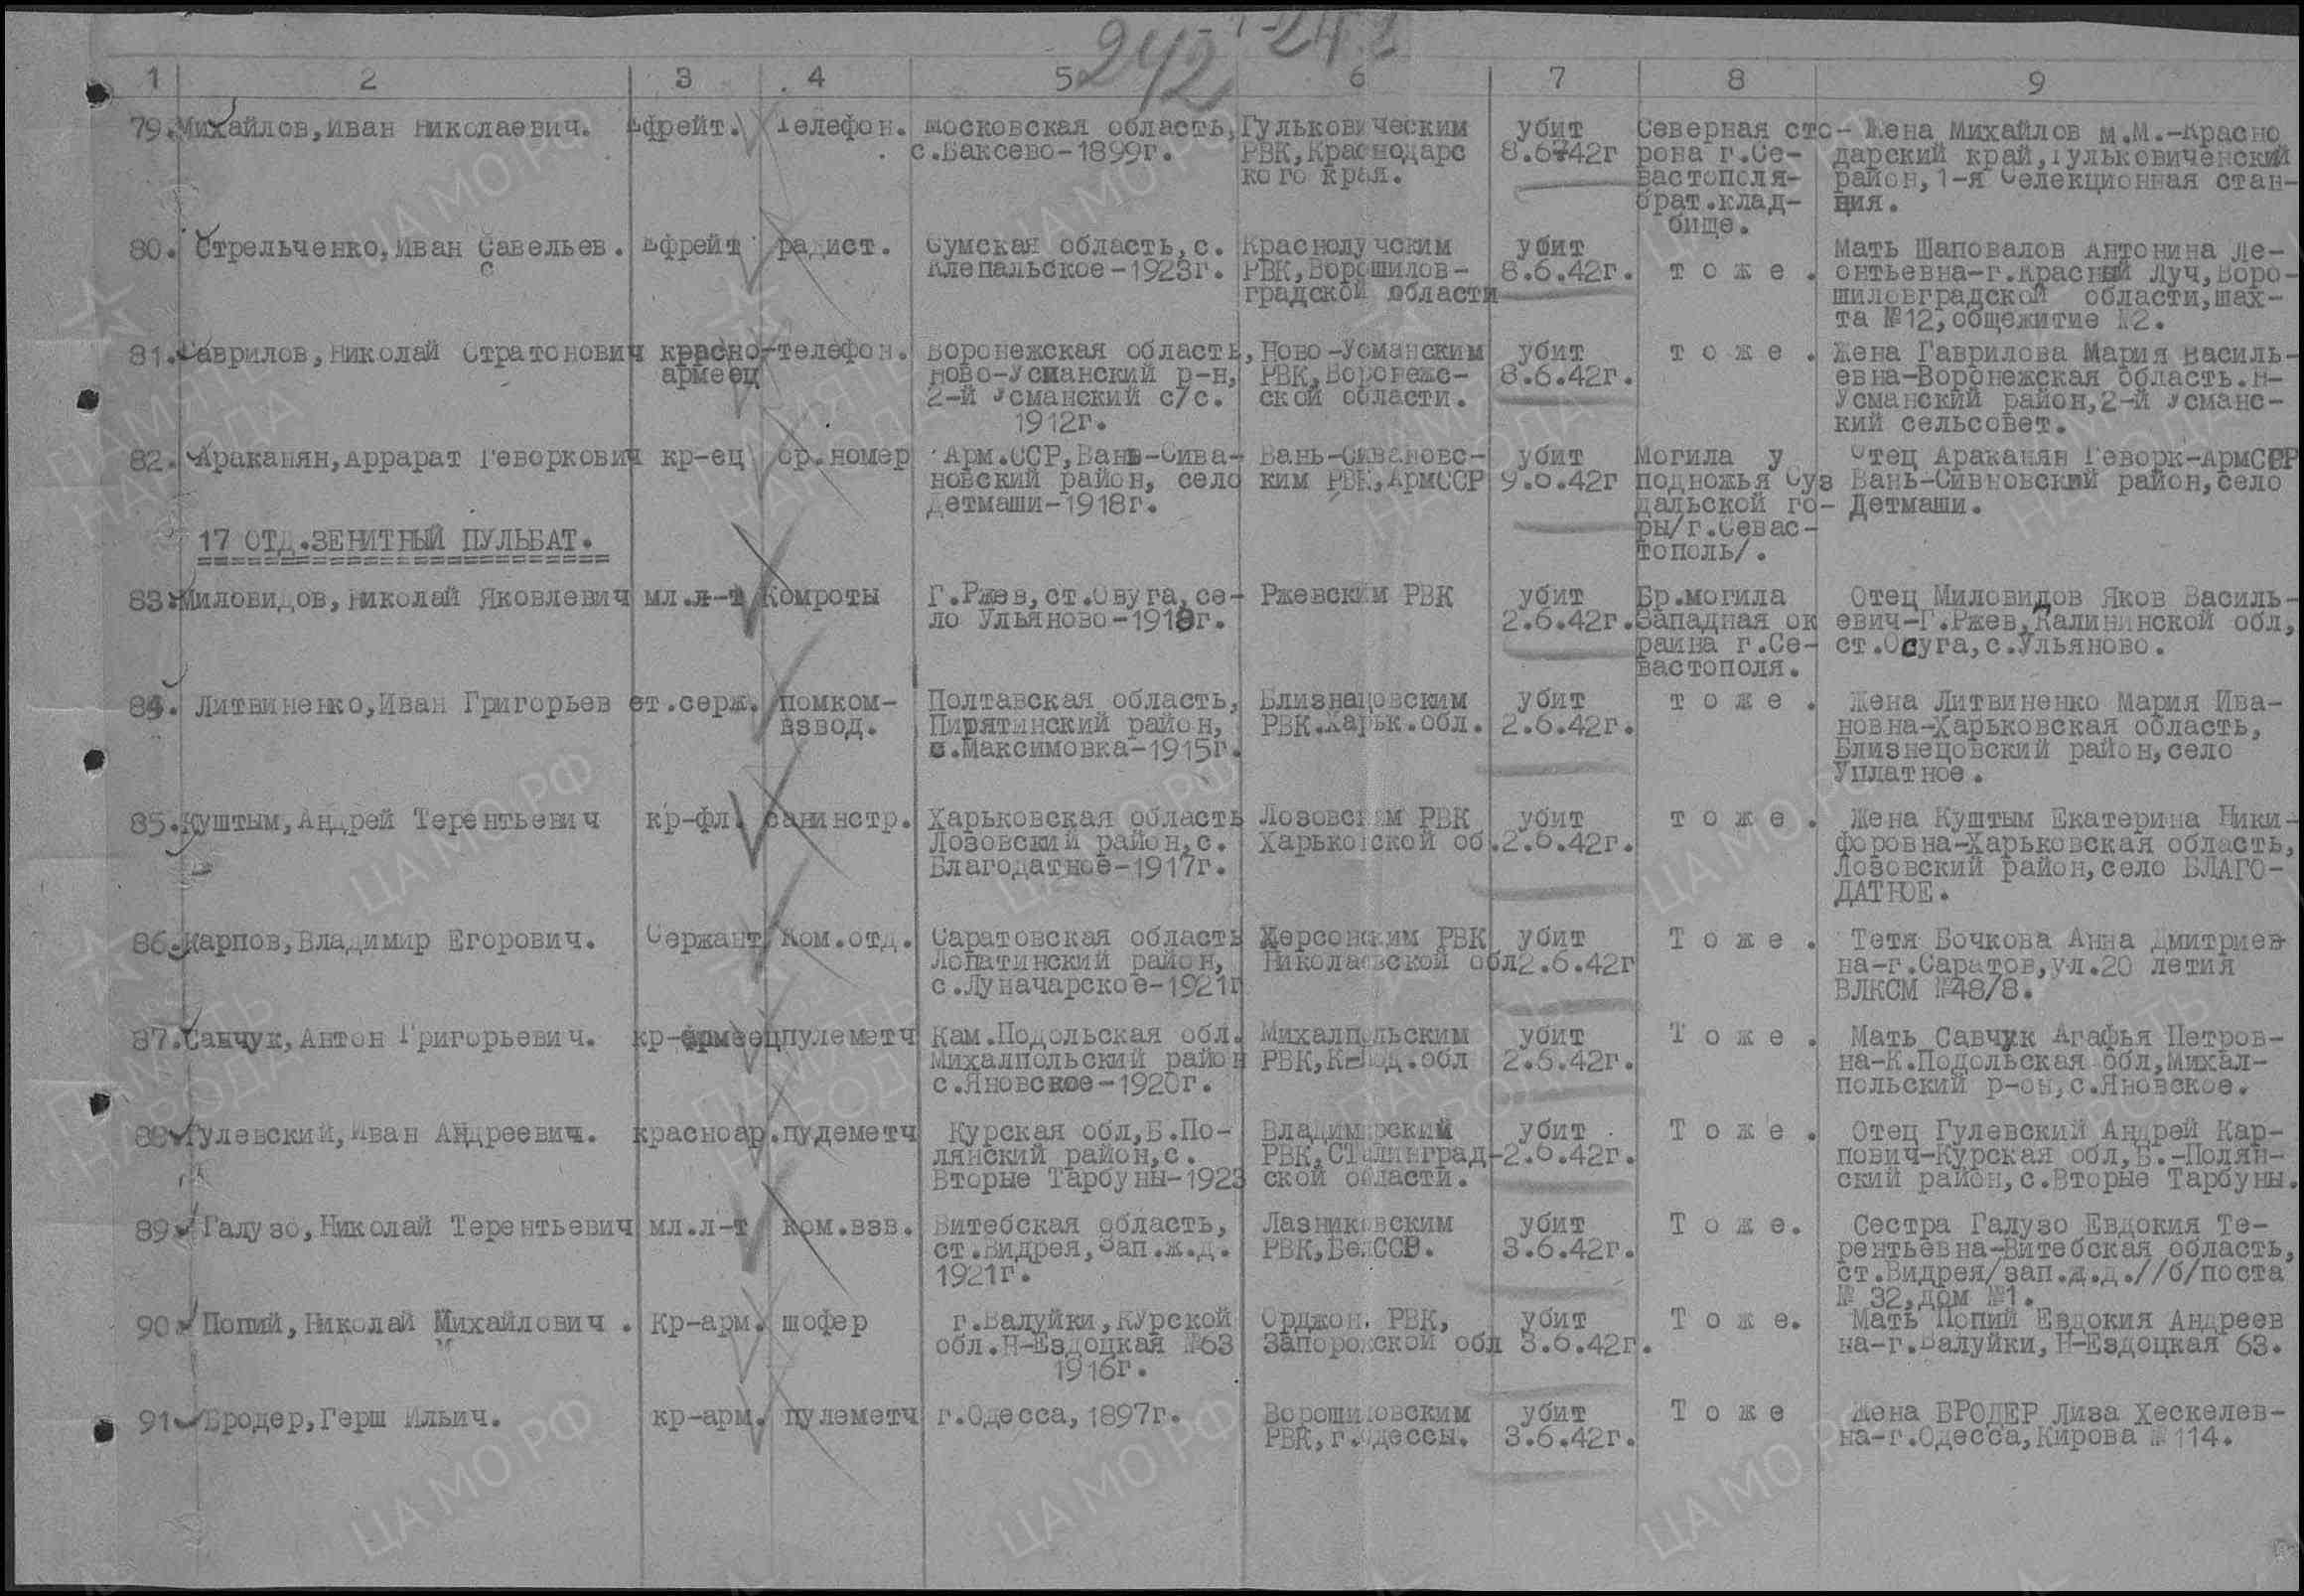 242
1 2 3 4 5 6 7 8 9
79. Михайлов, Иван Николаевич. Ефрейт. Телефон. Московская область, Гульковическим убит Северная сто- Жена Михайлов М.М.-Красно
с.Ваксево-1899г. РВК, Краснодарс 8.6.42г рона г.Се- дарский край, Гульковиченский
кого края. вастополя- район, 1-я Селекционная стан-
брат.клад- ция.
бище.
80. Стрельченко, Иван Савельев. Ефрейт радист. Сумская область, с. Краснолучским убит Мать Шаповалов Антонина Ле-
Клепальское-1923г. РВК, Ворошилов- 8.6.42г. т о ж е . онтьевна-г.Красный Луч, Воро-
градской области шиловградской области, шах-
та №12, общежитие №2.
81. Гаврилов, Николай Стратонович красно- телефон. Воронежская область, Ново-Усманским убит т о ж е . Жена Гаврилова Мария Василь-
армеец Ново-Усманский р-н, РВК, Воронежс- 8.6.42г. евна-Воронежская область.Н-
2-й Усманский с/с. ской области. Усманский район, 2-й Усманс-
1912г. кий сельсовет.
82. Араканян, Аррарат Геворкович кр-ец ор.номер Арм.ССР, Вань-Сива- Вань-Сивановс- убит Могила у Отец Араканян Геворк-АрмССР
новский район, село ким РВК, АрмССР 9.6.42г подножья Суз Вань-Сивновский район, село
Детмаши-1918г. дальской го- Детмаши.
ры/г.Севас-
тополь/.
17 ОТД.ЗЕНИТНЫЙ ПУЛЬБАТ.
83. Миловидов, Николай Яковлевич мл.л-т Комроты Г.Ржев, ст.Овуга, се- Ржевским РВК убит Бр.могила Отец Миловидов Яков Василь-
ло Ульяново-1918г. 2.6.42г. Западная ок евич-Г.Ржев, Калининской обл,
раина г.Се- ст.Осуга, с.Ульяново.
вастополя.
84. Литвиненко, Иван Григорьев ст.серж. помком- Полтавская область, Близнецовским убит т о ж е . Жена Литвиненко Мария Ива-
взвод. Пирятинский район, РВК.Харьк.обл. 2.6.42г. новна-Харьковская область,
с.Максимовка-1915г. Близнецовский район, село
Уплатное.
85. Куштым, Андрей Терентьевич кр-фл. санинстр. Харьковская область Лозовским РВК убит т о ж е . Жена Куштым Екатерина Ники-
Лозовский район, с. Харьковской об. 2.6.42г. форовна-Харьковская область,
Благодатное-1917г. Лозовский район, село БЛАГО-
ДАТНОЕ.
86. Карпов, Владимир Егорович. Сержант Ком.отд. Саратовская область Херсонским РВК убит Т о ж е . Тетя Бочкова Анна Дмитриев-
Лопатинский район, Николаевской обл 2.6.42г на-г.Саратов, ул.20 летия
с.Луначарское-1921г ВЛКСМ №48/8.
87. Савчук, Антон Григорьевич. кр-армеец пулеметч Кам.Подольская обл. Михалпольским убит Т о ж е . Мать Савчук Агафья Петров-
Михалпольский район РВК, К-Под.обл 2.6.42г. на-К.Подольская обл, Михал-
с.Яновское-1920г. польский р-он, с.Яновское.
88. Гулевский, Иван Андреевич. красноар. пудеметч Курская обл, Б.По- Владимирский убит Т о ж е . Отец Гулевский Андрей Кар-
лянский район, с. РВК, Сталинград- 2.6.42г. пович-Курская обл, Б.-Полян-
Вторые Тарбуны-1923 ской области. ский район, с.Вторые Тарбуны.
89. Галузо, Николай Терентьевич мл.л-т ком.взв. Витебская область, Лазниковским убит Т о ж е. Сестра Галузо Евдокия Те-
ст.Видрея, Зап.ж.д. РВК, БелССР. 3.6.42г. рентьевна-Витебская область,
1921г. ст.Видрея/зап.д.д.//б/поста
№ 32, дом №1.
90. Попий, Николай Михайлович . Кр-арм. шофер г.Валуйки, Курской Орджон. РВК, убит Т о ж е. Мать Попий Евдокия Андреев
обл.Н-Ездоцкая №63 Запорожской обл 3.6.42г. на-г.Валуйки, Н-Ездоцкая 63.
1916г.
91. Бродер, Герш Ильич. кр-арм. пулеметч г.Одесса, 1897г. Ворошиловским убит Т о ж е Жена БРОДЕР Лиза Хескелев-
РВК, г.Одессы. 3.6.42г. на-г.Одесса, Кирова №114.
ЦА МО.РФ
ПАМЯТЬ
НАРОДА